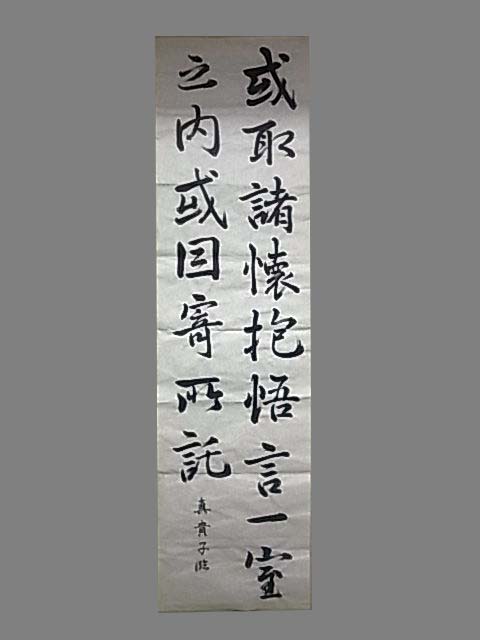 或取諸懷抱悟言一室
之内或因寄所託
真貴子臨